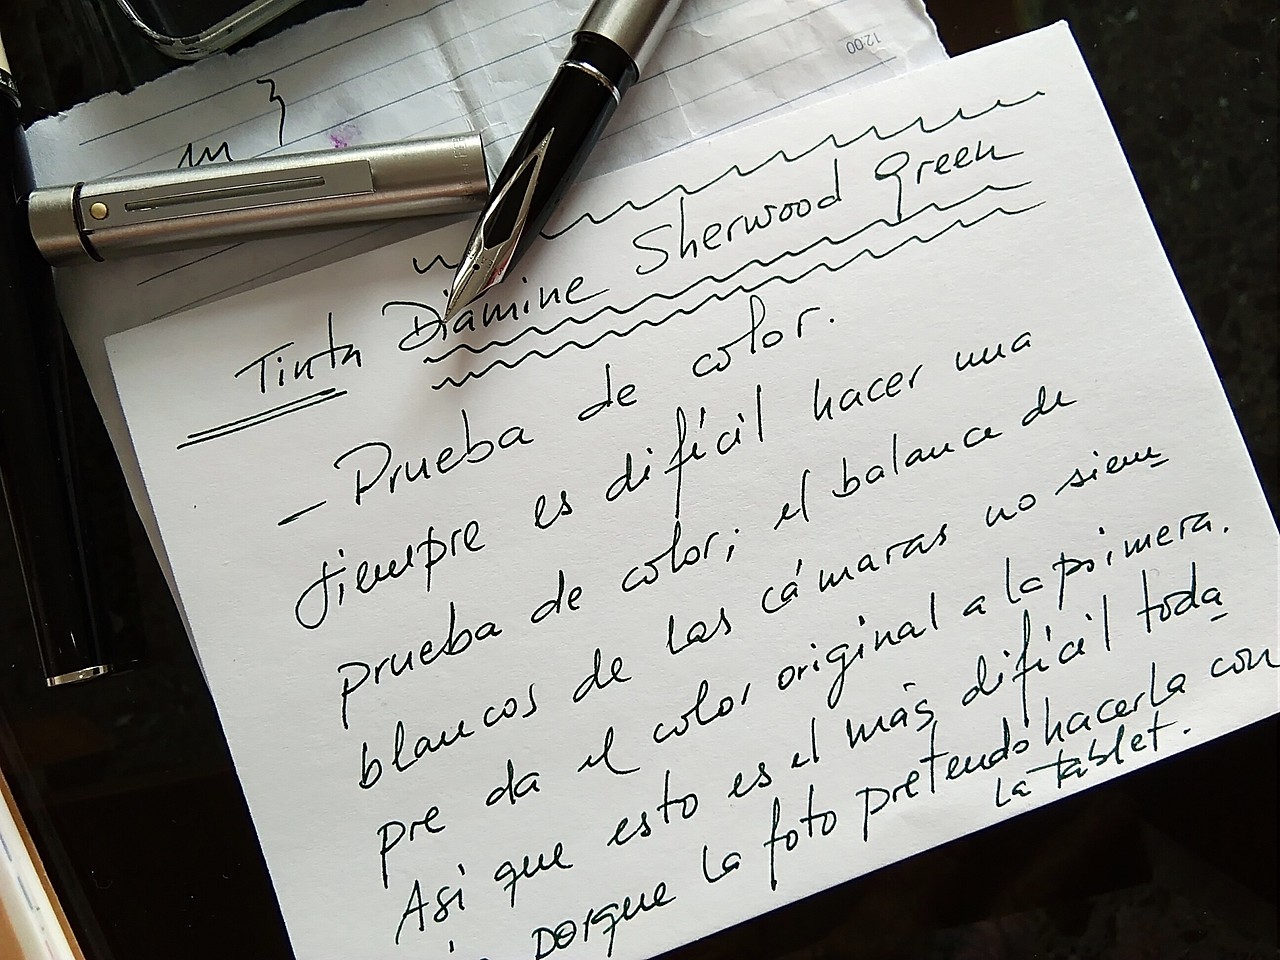 12:00
m }
Tinta Diamine Sherwood Green
- Prueba de color.
Siempre es difícil hacer una
prueba de color; el balance de
blancos de las cámaras no siem
pre da el color original a la primera.
Asi que esto es el más difícil toda
porque la foto pretendo hacerla con
la tablet.